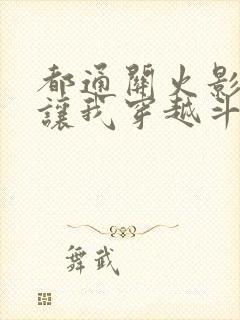 都通關火影
讓我穿越斗
舞武